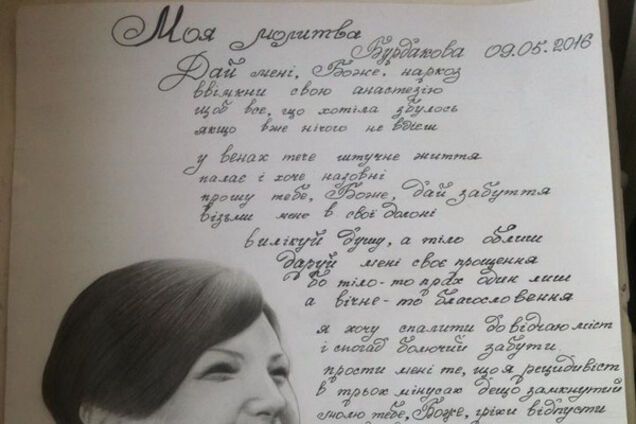 Моя молитва
Бурдакова 09.05.2016
Дай мені, Боже, наркоз
ввімкни свою анастезію
щоб все, що хотіла збулось
якщо вже нічого не вдієш
у венах тече штучне життя
палає і хоче назовні
прошу тебе, Боже, дай забуття
візьми мене в свої долоні
вилікуй душу, а тіло облиш
даруй мені своє прощення
бо тіло-то прах один лиш
а вічне-то благословення
я хочу спалити до відчаю міст
і спогад болючий забути.
прости мені те, що я рецидивіст
в трьох мінусах дещо замкнутий
молю тебе, Боже, гріхи відпусти